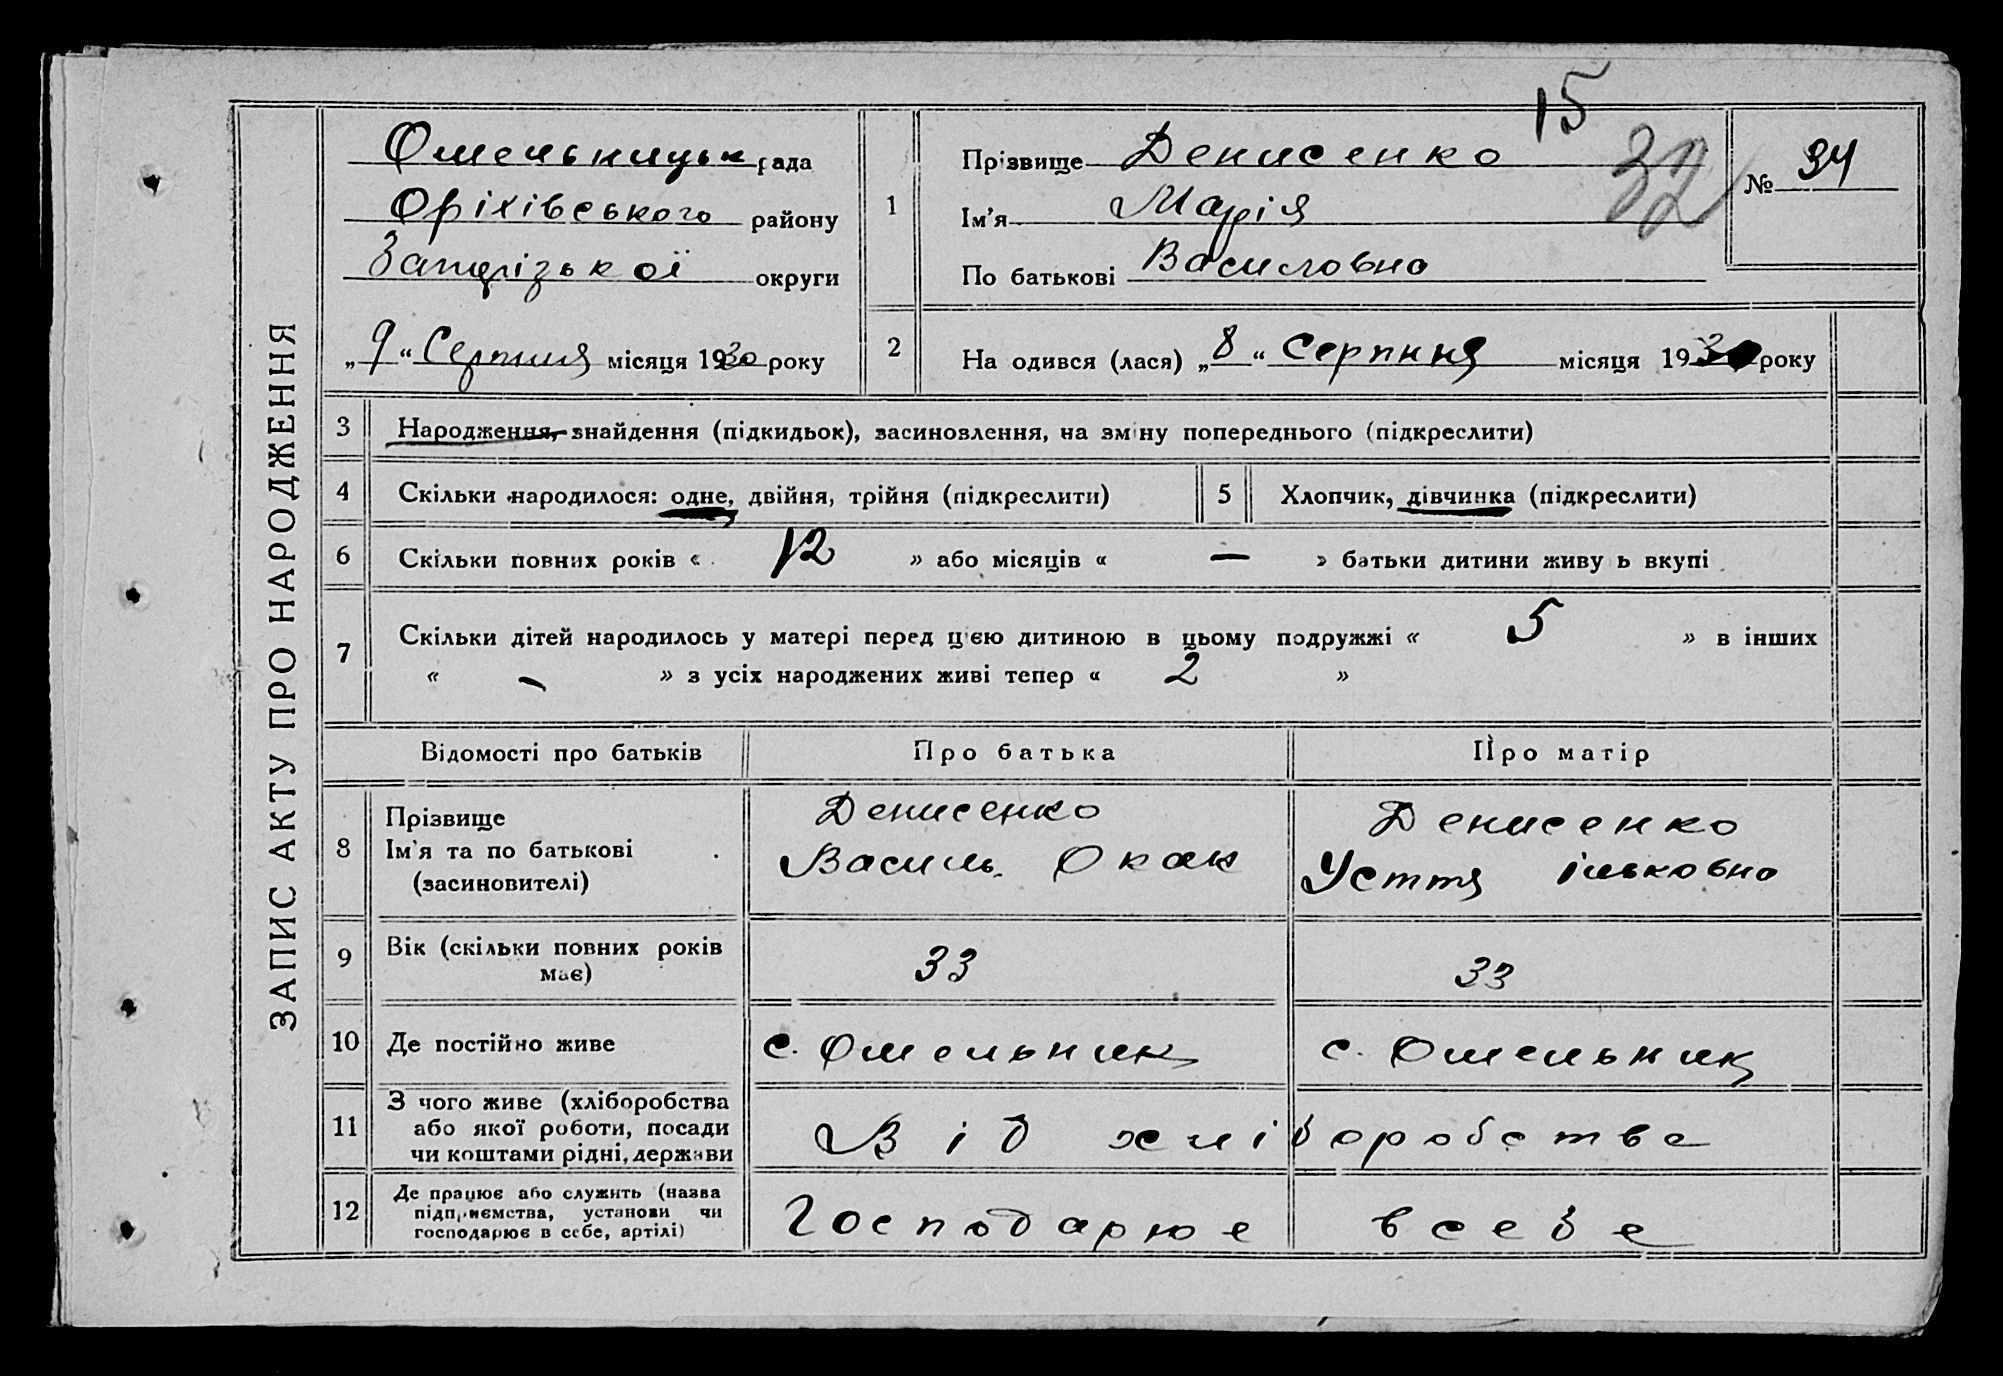 15
32
ЗАПИС АКТУ ПРО НАРОДЖЕННЯ
Омельницьк рада
Оріхівського району
Запорізької округи
„9“ Серпня місяця 1930 року
1
Прізвище Денисенко
Ім'я Марія
По батькові Василовна
№ 34
2
На одився (лася) „8“ Серпння місяця 1930 року
3 Народження, знайдення (підкидьок), засиновлення, на зміну попереднього (підкреслити)
4 Скільки народилося: одне, двійня, трійня (підкреслити) 5 Хлопчик, дівчинка (підкреслити)
6 Скільки повних років « 12 » або місяців « — » батьки дитини живу ь вкупі
7 Скільки дітей народилось у матері перед цією дитиною в цьому подружжі « 5 » в інших
« - » з усіх народжених живі тепер « 2 »
Відомості про батьків Про батька Про матір
8 Прізвище
Ім'я та по батькові
(засиновителі)
Денисенко
Василь
Денисенко
Усття ільковна
9 Вік (скільки повних років
має)
33 33
10 Де постійно живе с. Омельник с. Омельник
11 З чого живе (хліборобства
або якої роботи, посади
чи коштами рідні, держави
Від хліборобства
12 Де працює або служить (назва
підприємства, установи чи
господарює в себе, артілі)
Господарює всебе